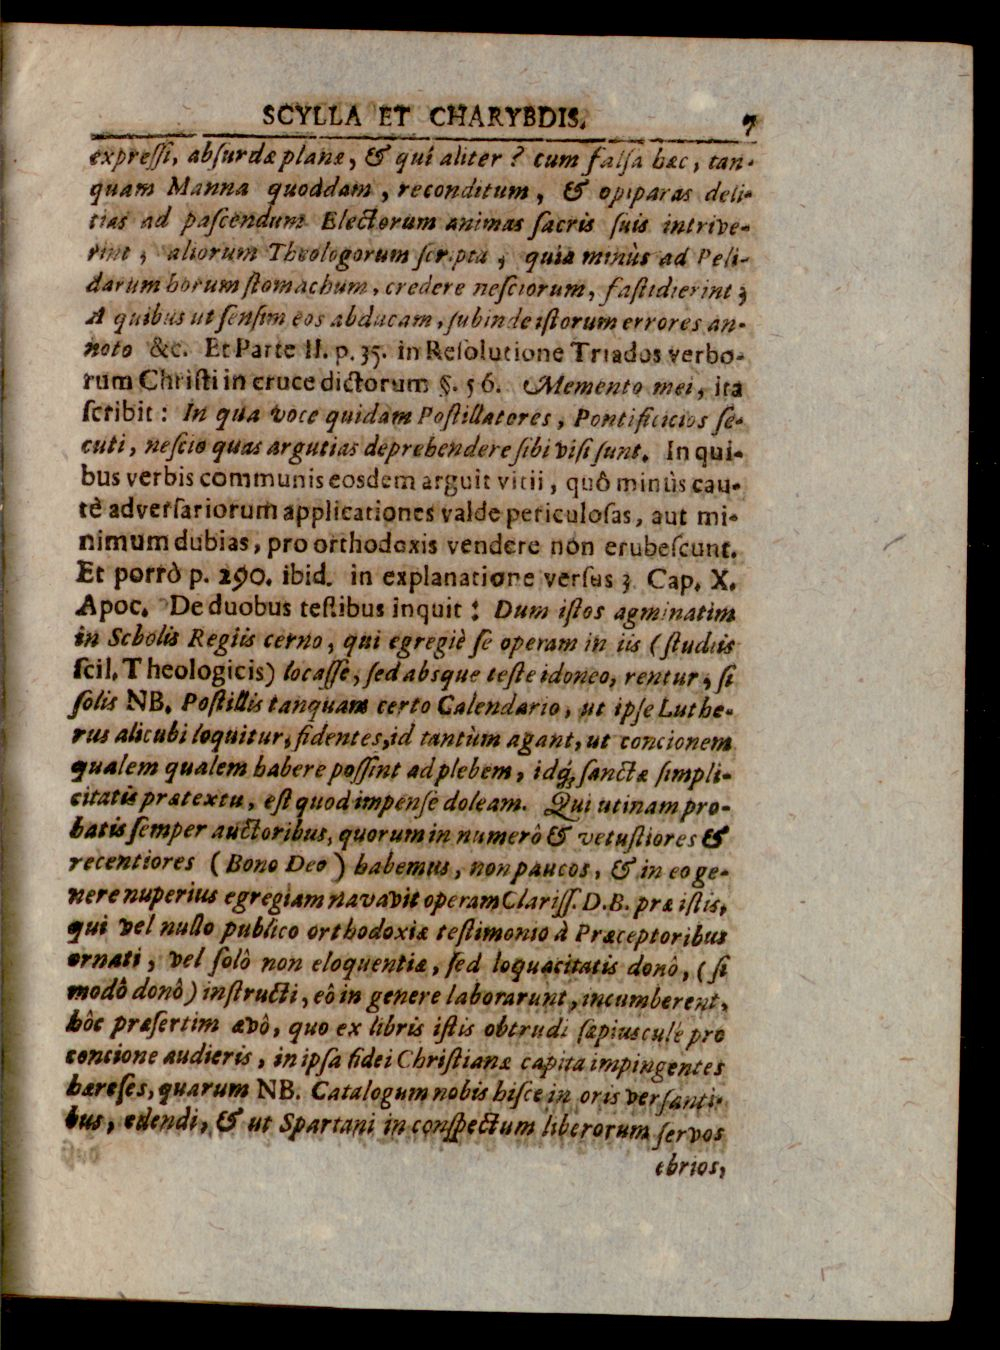 SCYLLA ET CHARYBDIS. 7
expreſſi, abſurdæ planæ, & qui aliter? cum falſa hæc, tan-
quam Manna quoddam, reconditum, & opiparas deli-
tias ad paſcendum Electorum animas ſacris ſuis intrive-
rint, aliorum Theologorum ſcripta, quia minùs ad Peli-
darum horum ſtomachum, credere neſciorum, faſtidierint;
A quibus ut ſenſim eos abducam, ſubinde iſtorum errores an-
noto &c. Et Parte II. p. 35. in Reſolutione Triados verbo-
rum Chriſti in cruce dictorum §. 56. Memento mei, ita
ſcribit: In qua voce quidam Poſtillatores, Pontificicios ſe-
cuti, neſcio quas argutias deprehendere ſibi viſi ſunt. In qui-
bus verbis communis eosdem arguit vitii, quô minùs cau-
tè adverſariorum applicationes valde periculoſas, aut mi-
nimum dubias, pro orthodoxis vendere non erubeſcunt.
Et porrò p. 290. ibid. in explanatione verſus 3. Cap. X.
Apoc. De duobus teſtibus inquit: Dum iſtos agminatim
in Scholis Regiis cerno, qui egregiè ſe operam in iis (ſtudiis
ſcil. Theologicis) locaſſe, ſed absque teſte idoneo, rentur, ſi
ſolis NB. Poſtillis tanquam certo Calendario, ut ipſe Luthe-
rus alicubi loquitur, fidentes, id tantùm agant, ut concionem
qualem qualem habere poſſint ad plebem, idq; ſanctæ ſimpli-
citatis prætextu, eſt quod impenſe doleam. Qui utinam pro-
batis ſemper auctoribus, quorum in numerô & vetuſtiores &
recentiores (Bono Deo) habemus, non paucos, & in eo ge-
nere nuperius egregiam navavit operam Clariſſ. D.B. præ iſtis,
qui vel nullo publico orthodoxiæ teſtimonio à Præceptoribus
ornati, vel ſolô non eloquentiæ, ſed loquacitatis donô, (ſi
modô donô) inſtructi, eô in genere laborarunt, incumberent,
hôc præſertim ævô, quo ex libris iſtis obtrudi ſæpiuscule pro
concione audieris, in ipſa fidei Chriſtianæ capita impingentes
hæreſes, quarum NB. Catalogum nobis hiſce in oris verſanti-
bus, edendi, & ut Spartani in conſpectum liberorum ſervos
ebrios,